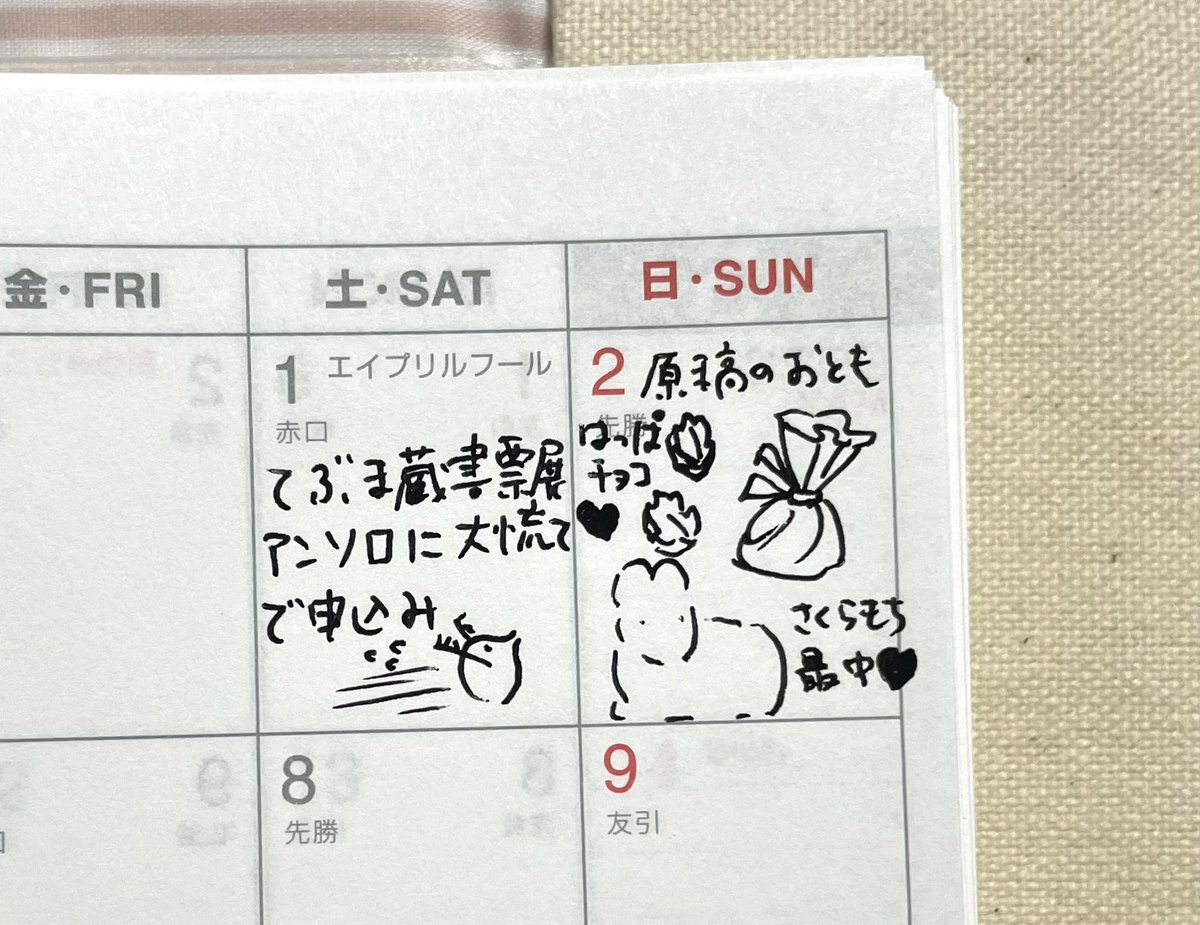 金・FRI
土・SAT
日・SUN
1 エイプリルフール
赤口
てぶま蔵書票展
アンソロに大慌て
で申込み
2 原稿のおとも
先勝
はっぱ
チョコ
♥
さくらもち
最中♥
8
先勝
9
友引